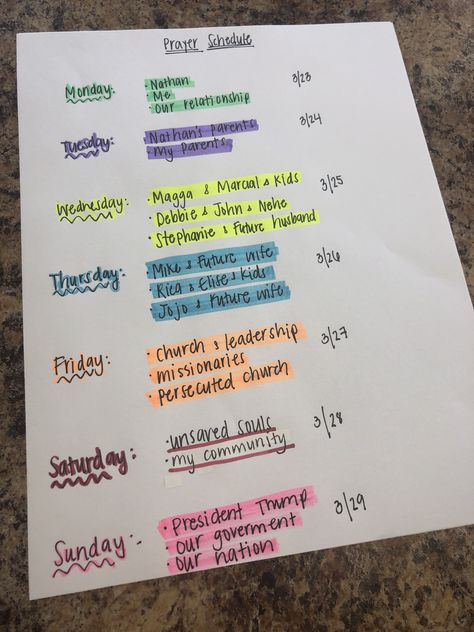 Prayer Schedule
Monday:
· Nathan
· Me
· Our relationship
3/23
Tuesday:
· Nathan's parents
· My parents
3/24
Wednesday:
· Magga & Marcial & Kids
· Debbie & John & Nene
· Stephanie & Future husband
3/25
Thursday:
· Mike & Future wife
· Rica & Elise & kids
· Jojo & Future wife
3/26
Friday:
· Church & leadership
· missionaries
· persecuted church
3/27
Saturday:
· unsaved souls
· my community
3/28
Sunday:-
· President Trump
· Our goverment
· Our nation
3/29